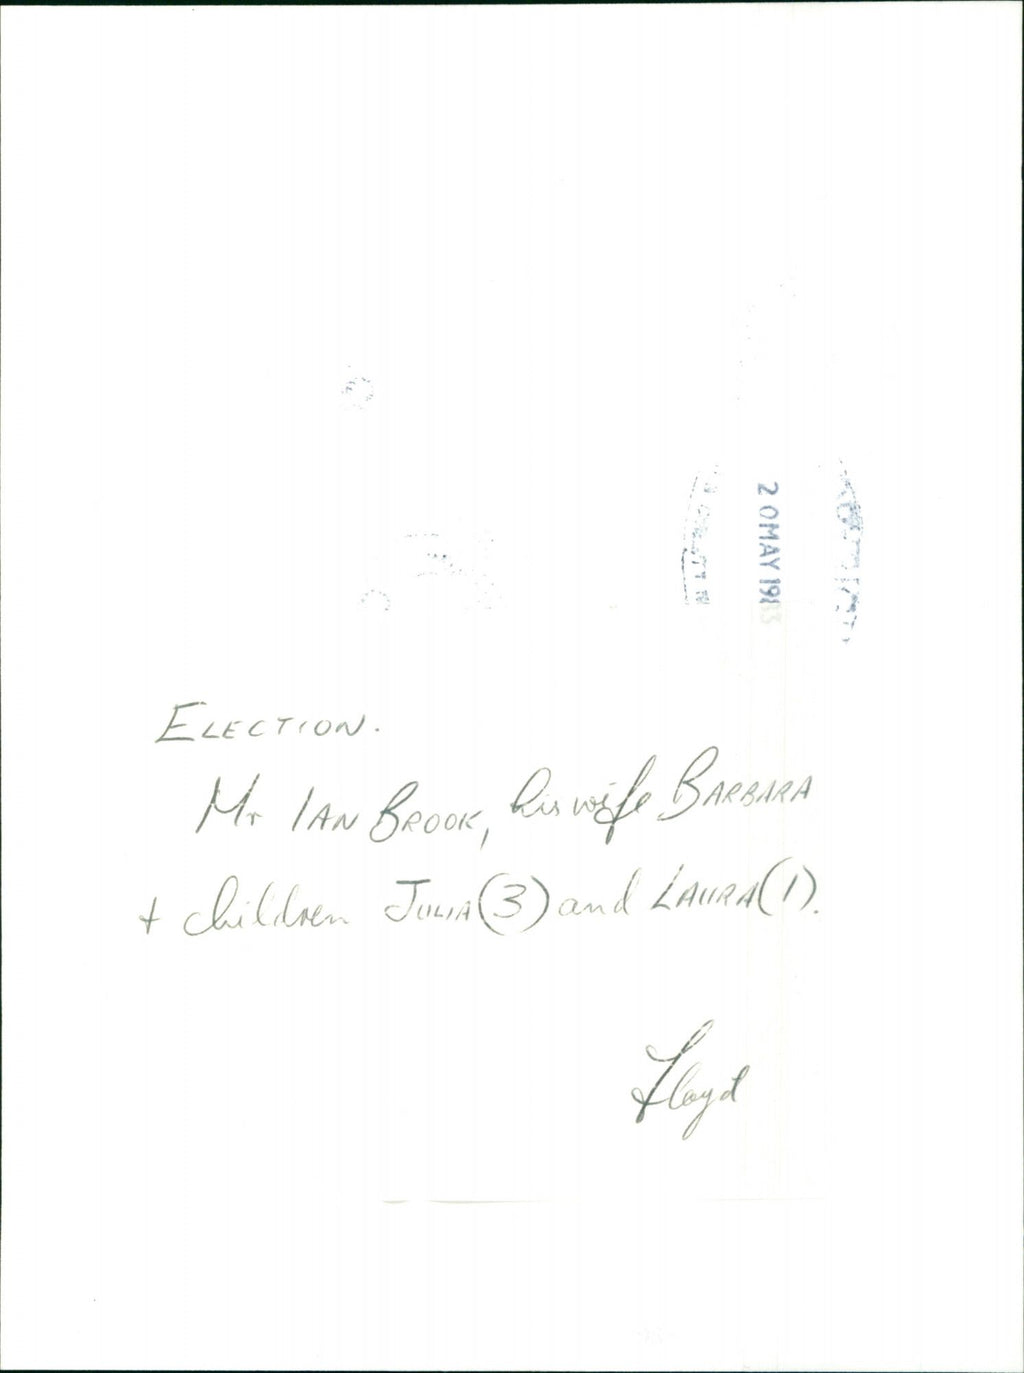 20 MAY 1983
ELECTION.
Mr IAN BROOK, his wife BARBARA
+ children JULIA (3) and LAURA (1).
Floyd